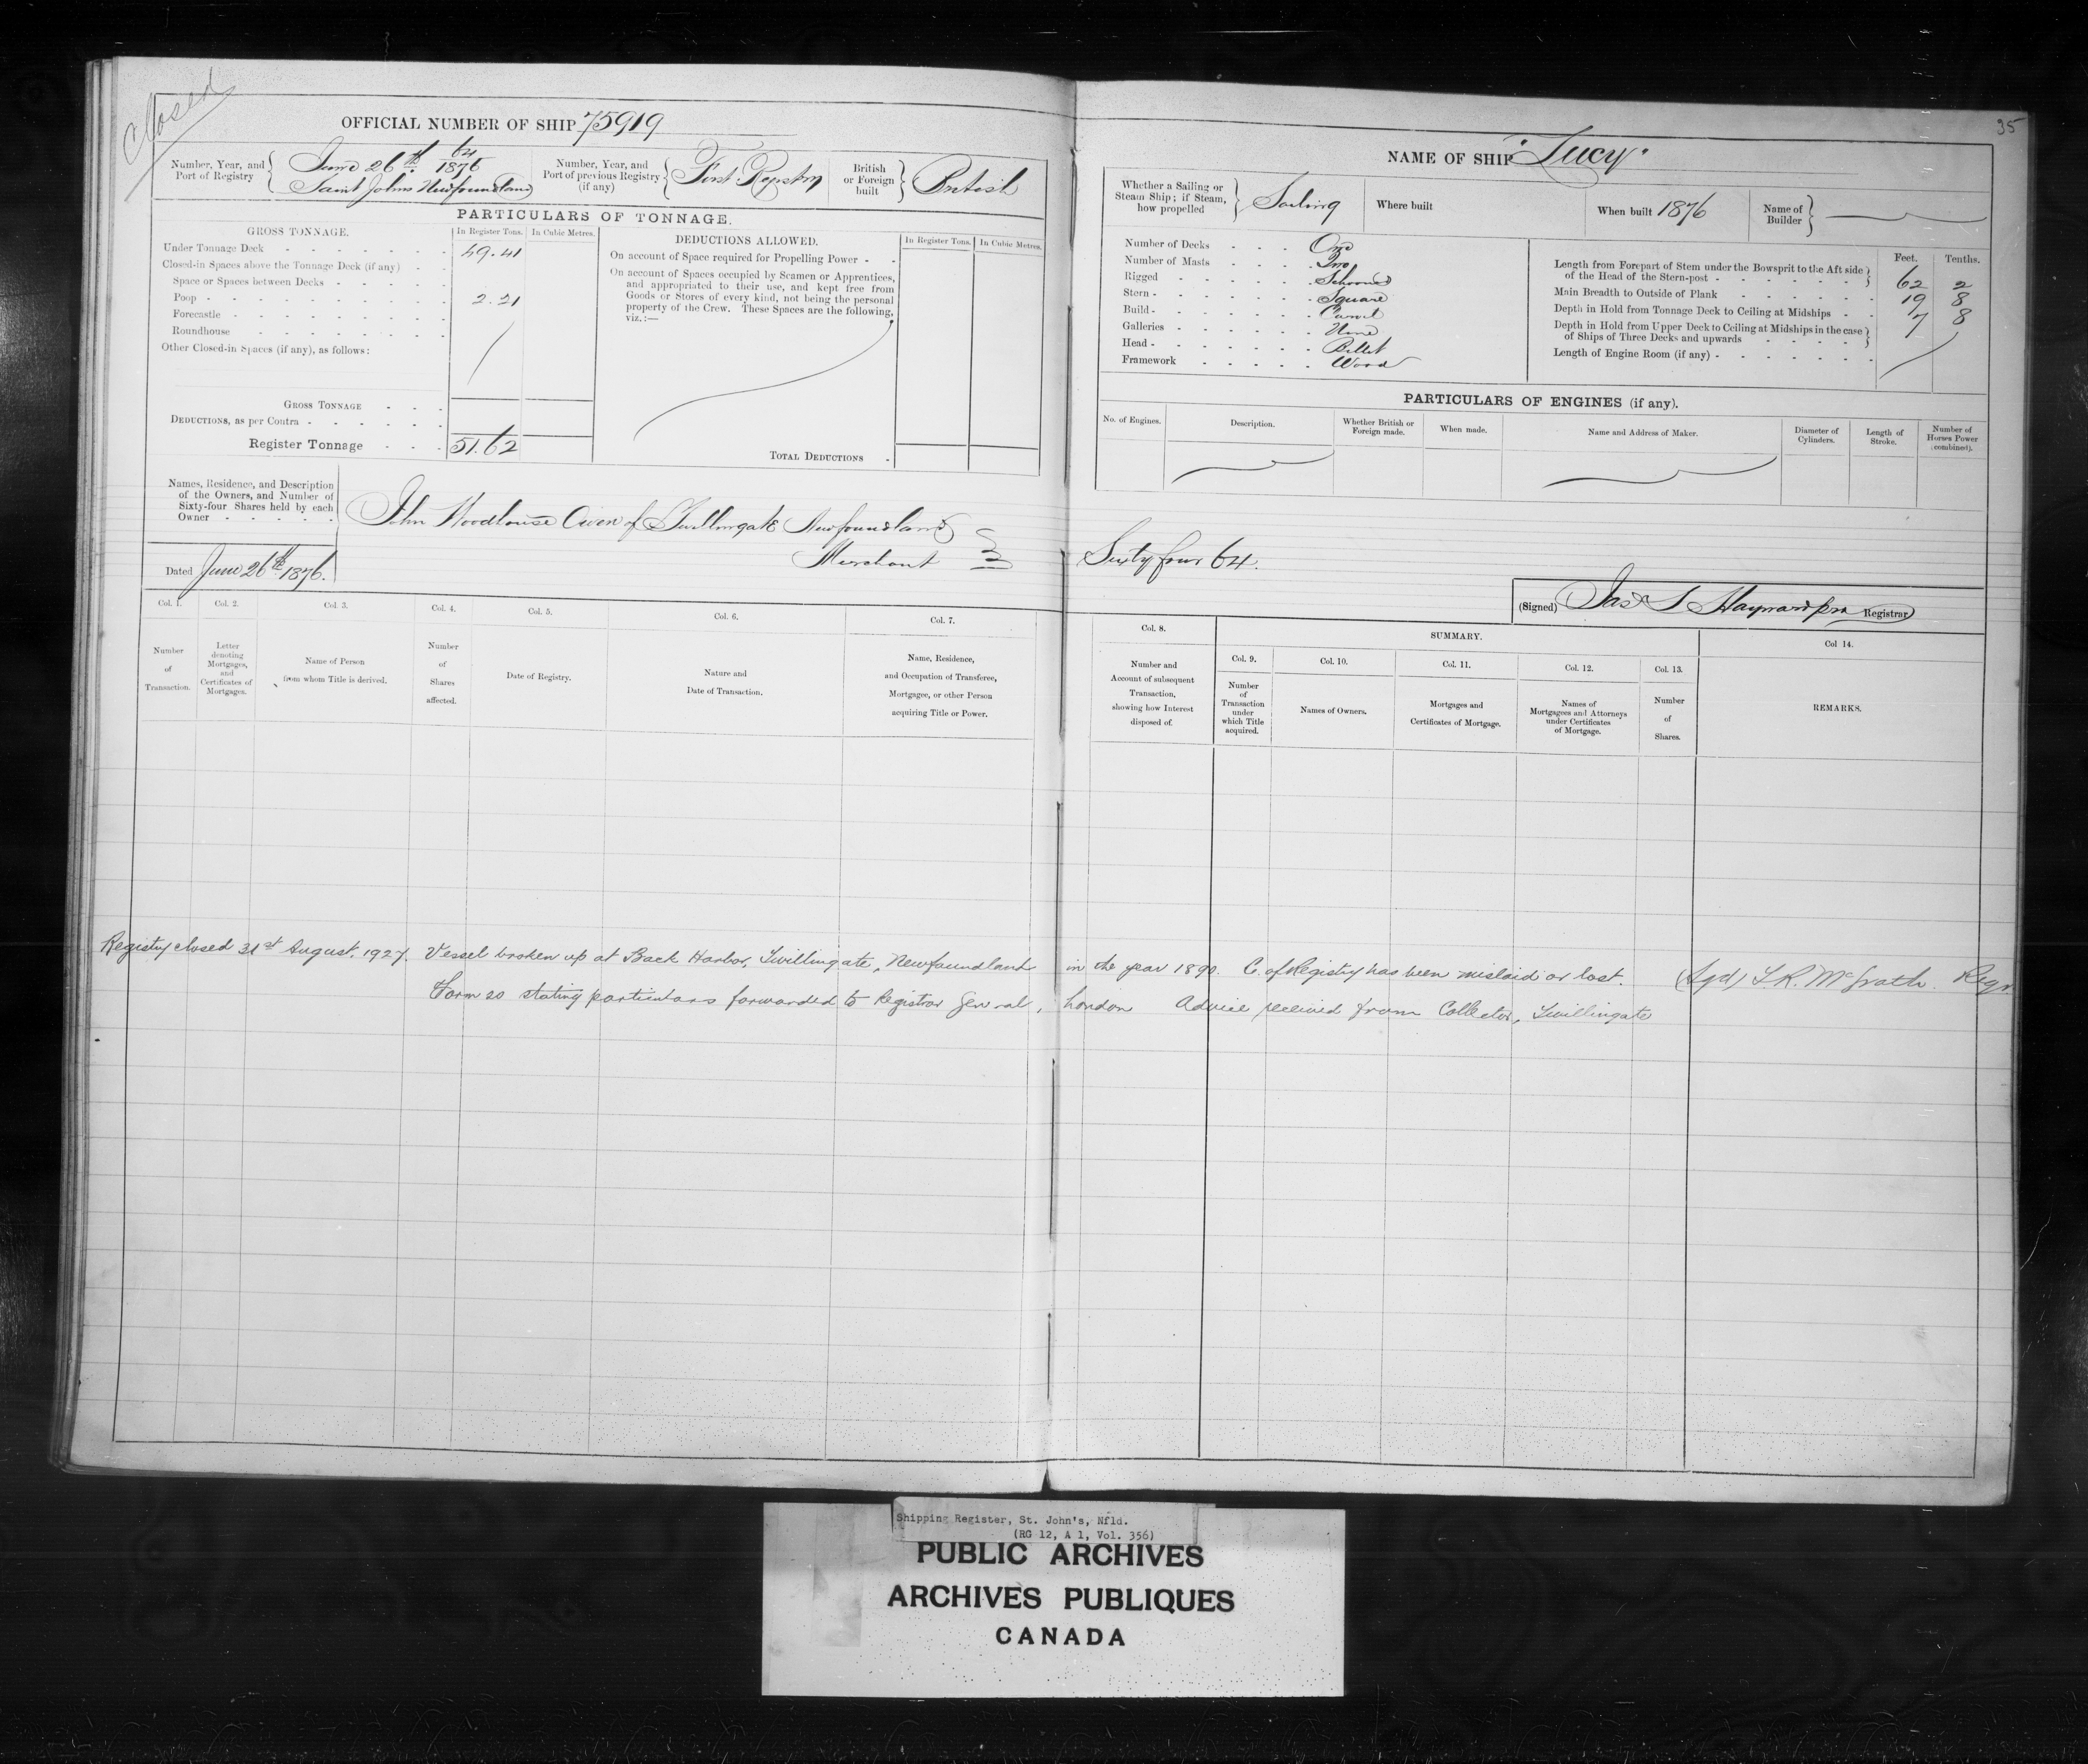 Closed
35
OFFICIAL NUMBER OF SHIP 75919
Number, Year, and Port of Registry { 64 June 26th 1876
Saint Johns Newfoundland
Number, Year, and Port of previous Registry (if any) { First Registry
British or Foreign built } British
PARTICULARS OF TONNAGE.
GROSS TONNAGE. In Register Tons. In Cubic Metres.
Under Tonnage Deck 49.41
Closed-in Spaces above the Tonnage Deck (if any)
Space or Spaces between Decks
Poop 2.21
Forecastle
Roundhouse
Other Closed-in Spaces (if any), as follows:
GROSS TONNAGE
DEDUCTIONS, as per Contra
Register Tonnage 51.62
DEDUCTIONS ALLOWED. In Register Tons. In Cubic Metres.
On account of Space required for Propelling Power
On account of Spaces occupied by Seamen or Apprentices,
and appropriated to their use, and kept free from
Goods or Stores of every kind, not being the personal
property of the Crew. These Spaces are the following,
viz.:—
TOTAL DEDUCTIONS
NAME OF SHIP "Lucy"
Whether a Sailing or Steam Ship; if Steam, how propelled } Sailing
Where built
When built 1876
Name of Builder }
Number of Decks One
Number of Masts Two
Rigged Schooner
Stern Square
Build Carvel
Galleries None
Head Billet
Framework Wood
Feet. Tenths.
Length from Forepart of Stem under the Bowsprit to the Aft side
of the Head of the Stern-post 62 2
Main Breadth to Outside of Plank 19 8
Depth in Hold from Tonnage Deck to Ceiling at Midships 7 8
Depth in Hold from Upper Deck to Ceiling at Midships in the case
of Ships of Three Decks and upwards
Length of Engine Room (if any)
PARTICULARS OF ENGINES (if any).
No. of Engines. Description. Whether British or Foreign made. When made. Name and Address of Maker. Diameter of Cylinders. Length of Stroke. Number of Horses Power (combined).
Names, Residence, and Description
of the Owners, and Number of
Sixty-four Shares held by each
Owner
John Woodhouse Owen of Twillingate Newfoundland
Merchant Sixty four 64.
Dated June 26th 1876.
(Signed) Jas S Hayward pro Registrar
Col. 1. Col. 2. Col. 3. Col. 4. Col. 5. Col. 6. Col. 7.
Number of Transaction.
Letter denoting Mortgages, and Certificates of Mortgages.
Name of Person from whom Title is derived.
Number of Shares affected.
Date of Registry.
Nature and Date of Transaction.
Name, Residence, and Occupation of Transferee, Mortgagee, or other Person acquiring Title or Power.
Col. 8. SUMMARY. Col 14.
Col. 9. Col. 10. Col. 11. Col. 12. Col. 13.
Number and Account of subsequent Transaction, showing how Interest disposed of.
Number of Transaction under which Title acquired.
Names of Owners.
Mortgages and Certificates of Mortgage.
Names of Mortgagees and Attorneys under Certificates of Mortgage.
Number of Shares.
REMARKS.
Registry closed 31st August, 1927. Vessel broken up at Back Harbor, Twillingate, Newfoundland in the year 1890. C. of Registry has been mislaid or lost. (Sgd) McGrath. Regr
Form 20 stating particulars forwarded to Registrar General, London Advice received from Collector, Twillingate
Shipping Register, St. John's, Nfld.
(RG 12, A 1, Vol. 356)
PUBLIC ARCHIVES
ARCHIVES PUBLIQUES
CANADA